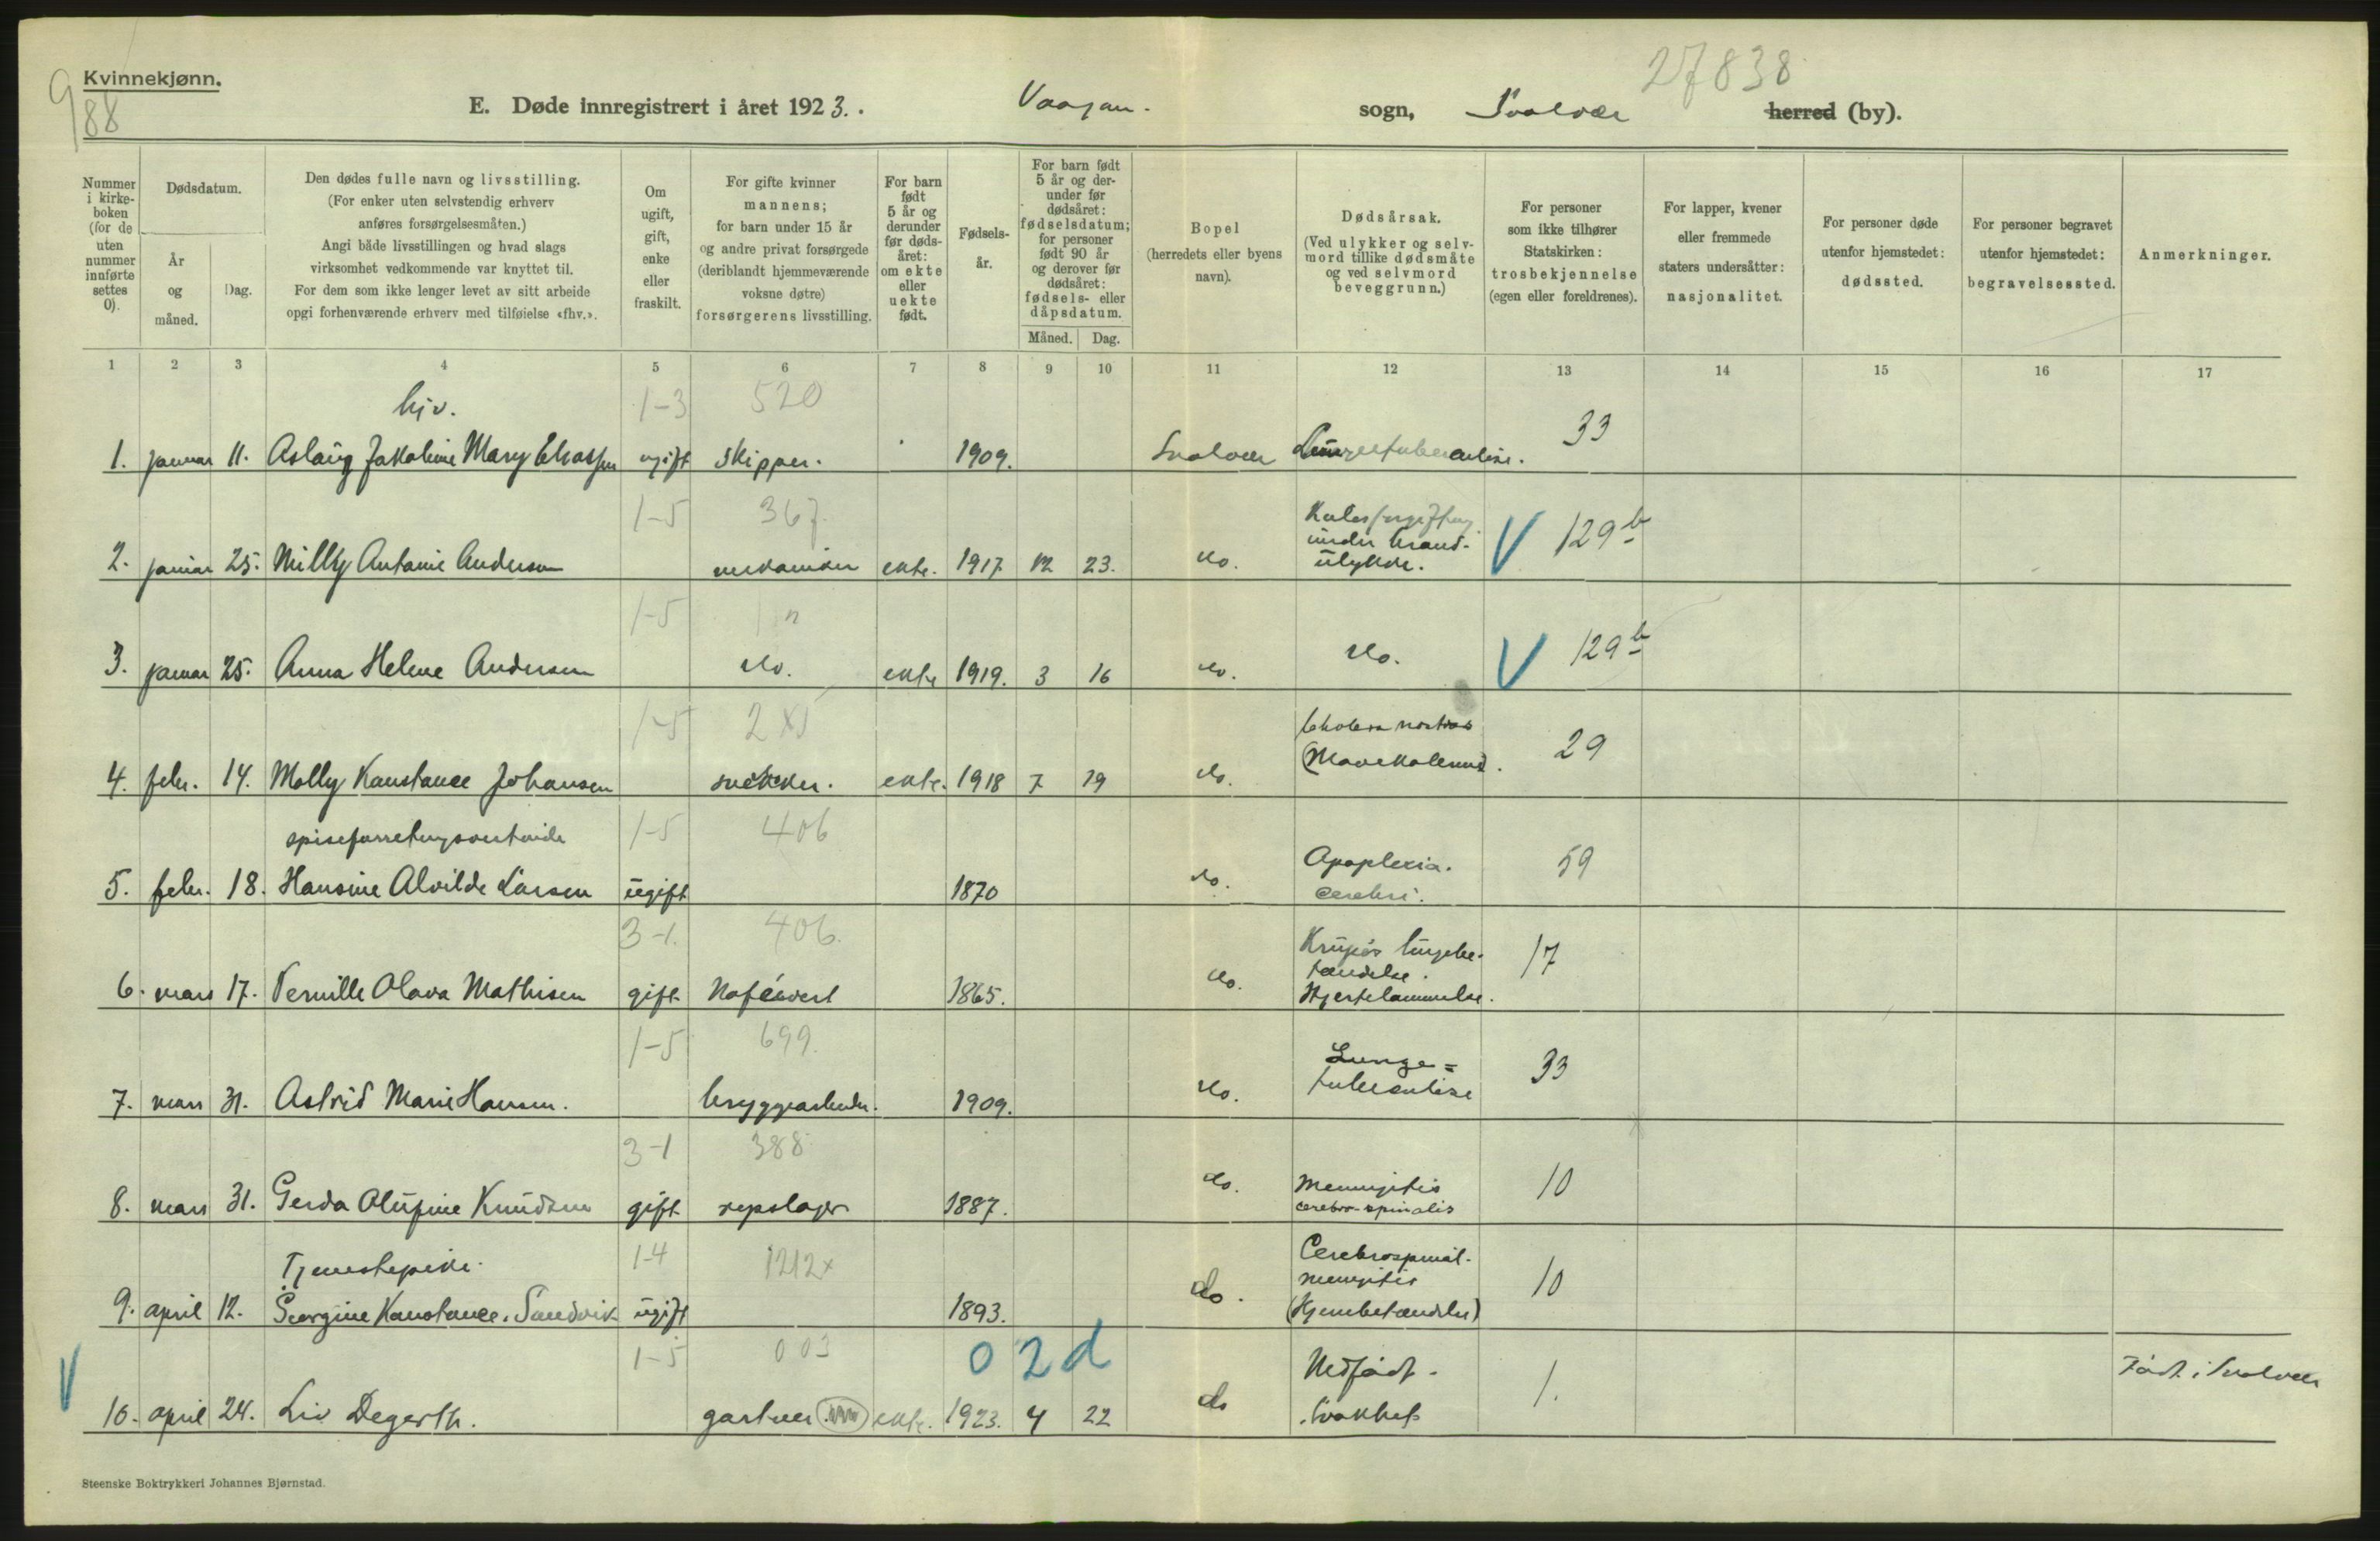 Kvinnekjønn.
988
27838
E. Døde innregistrert i året 1923. Vaagan. sogn, Svolvær herred (by).
Nummer i kirkeboken (for de uten nummer innførte settes 0).
Dødsdatum.
År og måned.
Dag.
Den dødes fulle navn og livsstilling.
(For enker uten selvstendig erhverv
anføres forsørgelsesmåten.)
Angi både livsstillingen og hvad slags
virksomhet vedkommende var knyttet til.
For dem som ikke lenger levet av sitt arbeide
opgi forhenværende erhverv med tilføielse «fhv.».
Om ugift, gift, enke eller fraskilt.
For gifte kvinner
mannens;
for barn under 15 år
og andre privat forsørgede
(deriblandt hjemmeværende
voksne døtre)
forsørgerens livsstilling.
For barn født 5 år og derunder før dødsåret: om ekte eller uekte født.
Fødselsår.
For barn født 5 år og derunder før dødsåret: fødselsdatum; for personer født 90 år og derover før dødsåret: fødsels- eller dåpsdatum.
Måned. Dag.
Bopel
(herredets eller byens
navn).
Dødsårsak.
(Ved ulykker og selvmord tillike dødsmåte og ved selvmord beveggrunn.)
For personer
som ikke tilhører
Statskirken:
trosbekjennelse
(egen eller foreldrenes).
For lapper, kvener
eller fremmede
staters undersåtter:
nasjonalitet.
For personer døde
utenfor hjemstedet:
dødssted.
For personer begravet
utenfor hjemstedet:
begravelsessted.
Anmerkninger.
1 2 3 4 5 6 7 8 9 10 11 12 13 14 15 16 17
hjv. 1-3 520
1. januar 11. Aslaug Jakobine Mary Eliassen ugift skipper. 1909. Svolvær Lungetuberculose. 33
1-5 367
2. januar 25. Milly Antonie Andersen mekaniker ekte. 1917 12 23. do. Kulosforgiftning under brand-ulykke. V 129b
1-5
3. januar 25. Anna Helene Andersen do. ekte 1919. 3 16 do. do. V 129b
1-5 2X5
4. febr. 14. Molly Konstance Johansen snekker. ekte. 1918 7 19 do. Cholera nostras 29
spiseforretningsvertinde 1-5 406
5. febr. 18. Hansine Alvilde Larsen ugift 1870 do. Apoplexia. cerebri. 59
3-1. 406.
6. mars 17. Pernille Olava Mathisen gift Kafévert 1865. do. Krupøs lungebetændelse. Hjertelammelse. 17
1-5 699.
7. mars 31. Astrid Marie Hansen. bryggearbeider. 1909. do. Lunge=tuberculose 33
3-1 388
8. mars 31. Gerda Olufine Knudsen gift repslager 1887. do. Meningitis cerebro-spinalis 10
Tjenestepike. 1-4 1212x
9. april 12. Georgine Konstance. Sandvik ugift 1893. do. Cerebrospinal-meningitis (Hjernebetændelse) 10
1-5 003 02d
V 10. april 24. Liv Degerth. gartner ekte. 1923. 4 22 do Medfødt svakhet 1. Født i Svolvær
Steenske Boktrykkeri Johannes Bjørnstad.